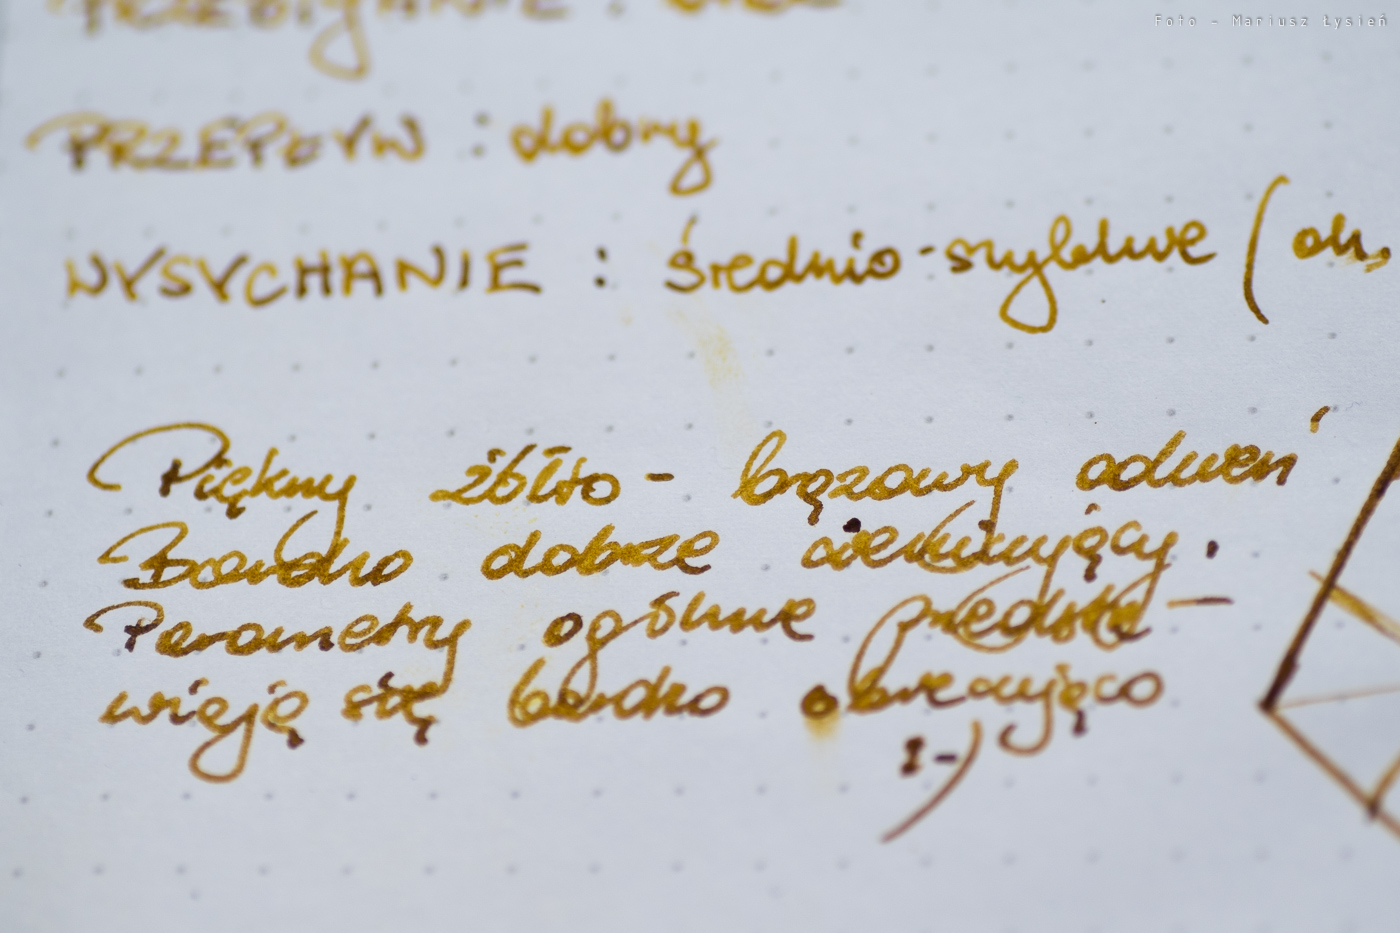 Foto - Mariusz Łysień
PRZEBIJANIE :
PRZEPŁYW : dobry
WYSYCHANIE : średnio-szybkie ( ok.
Piękny żółto - brązowy odcień
Bardzo dobrze cieniujący.
Parametry ogólne przedsta-
wiają się bardzo obiecująco
:-)